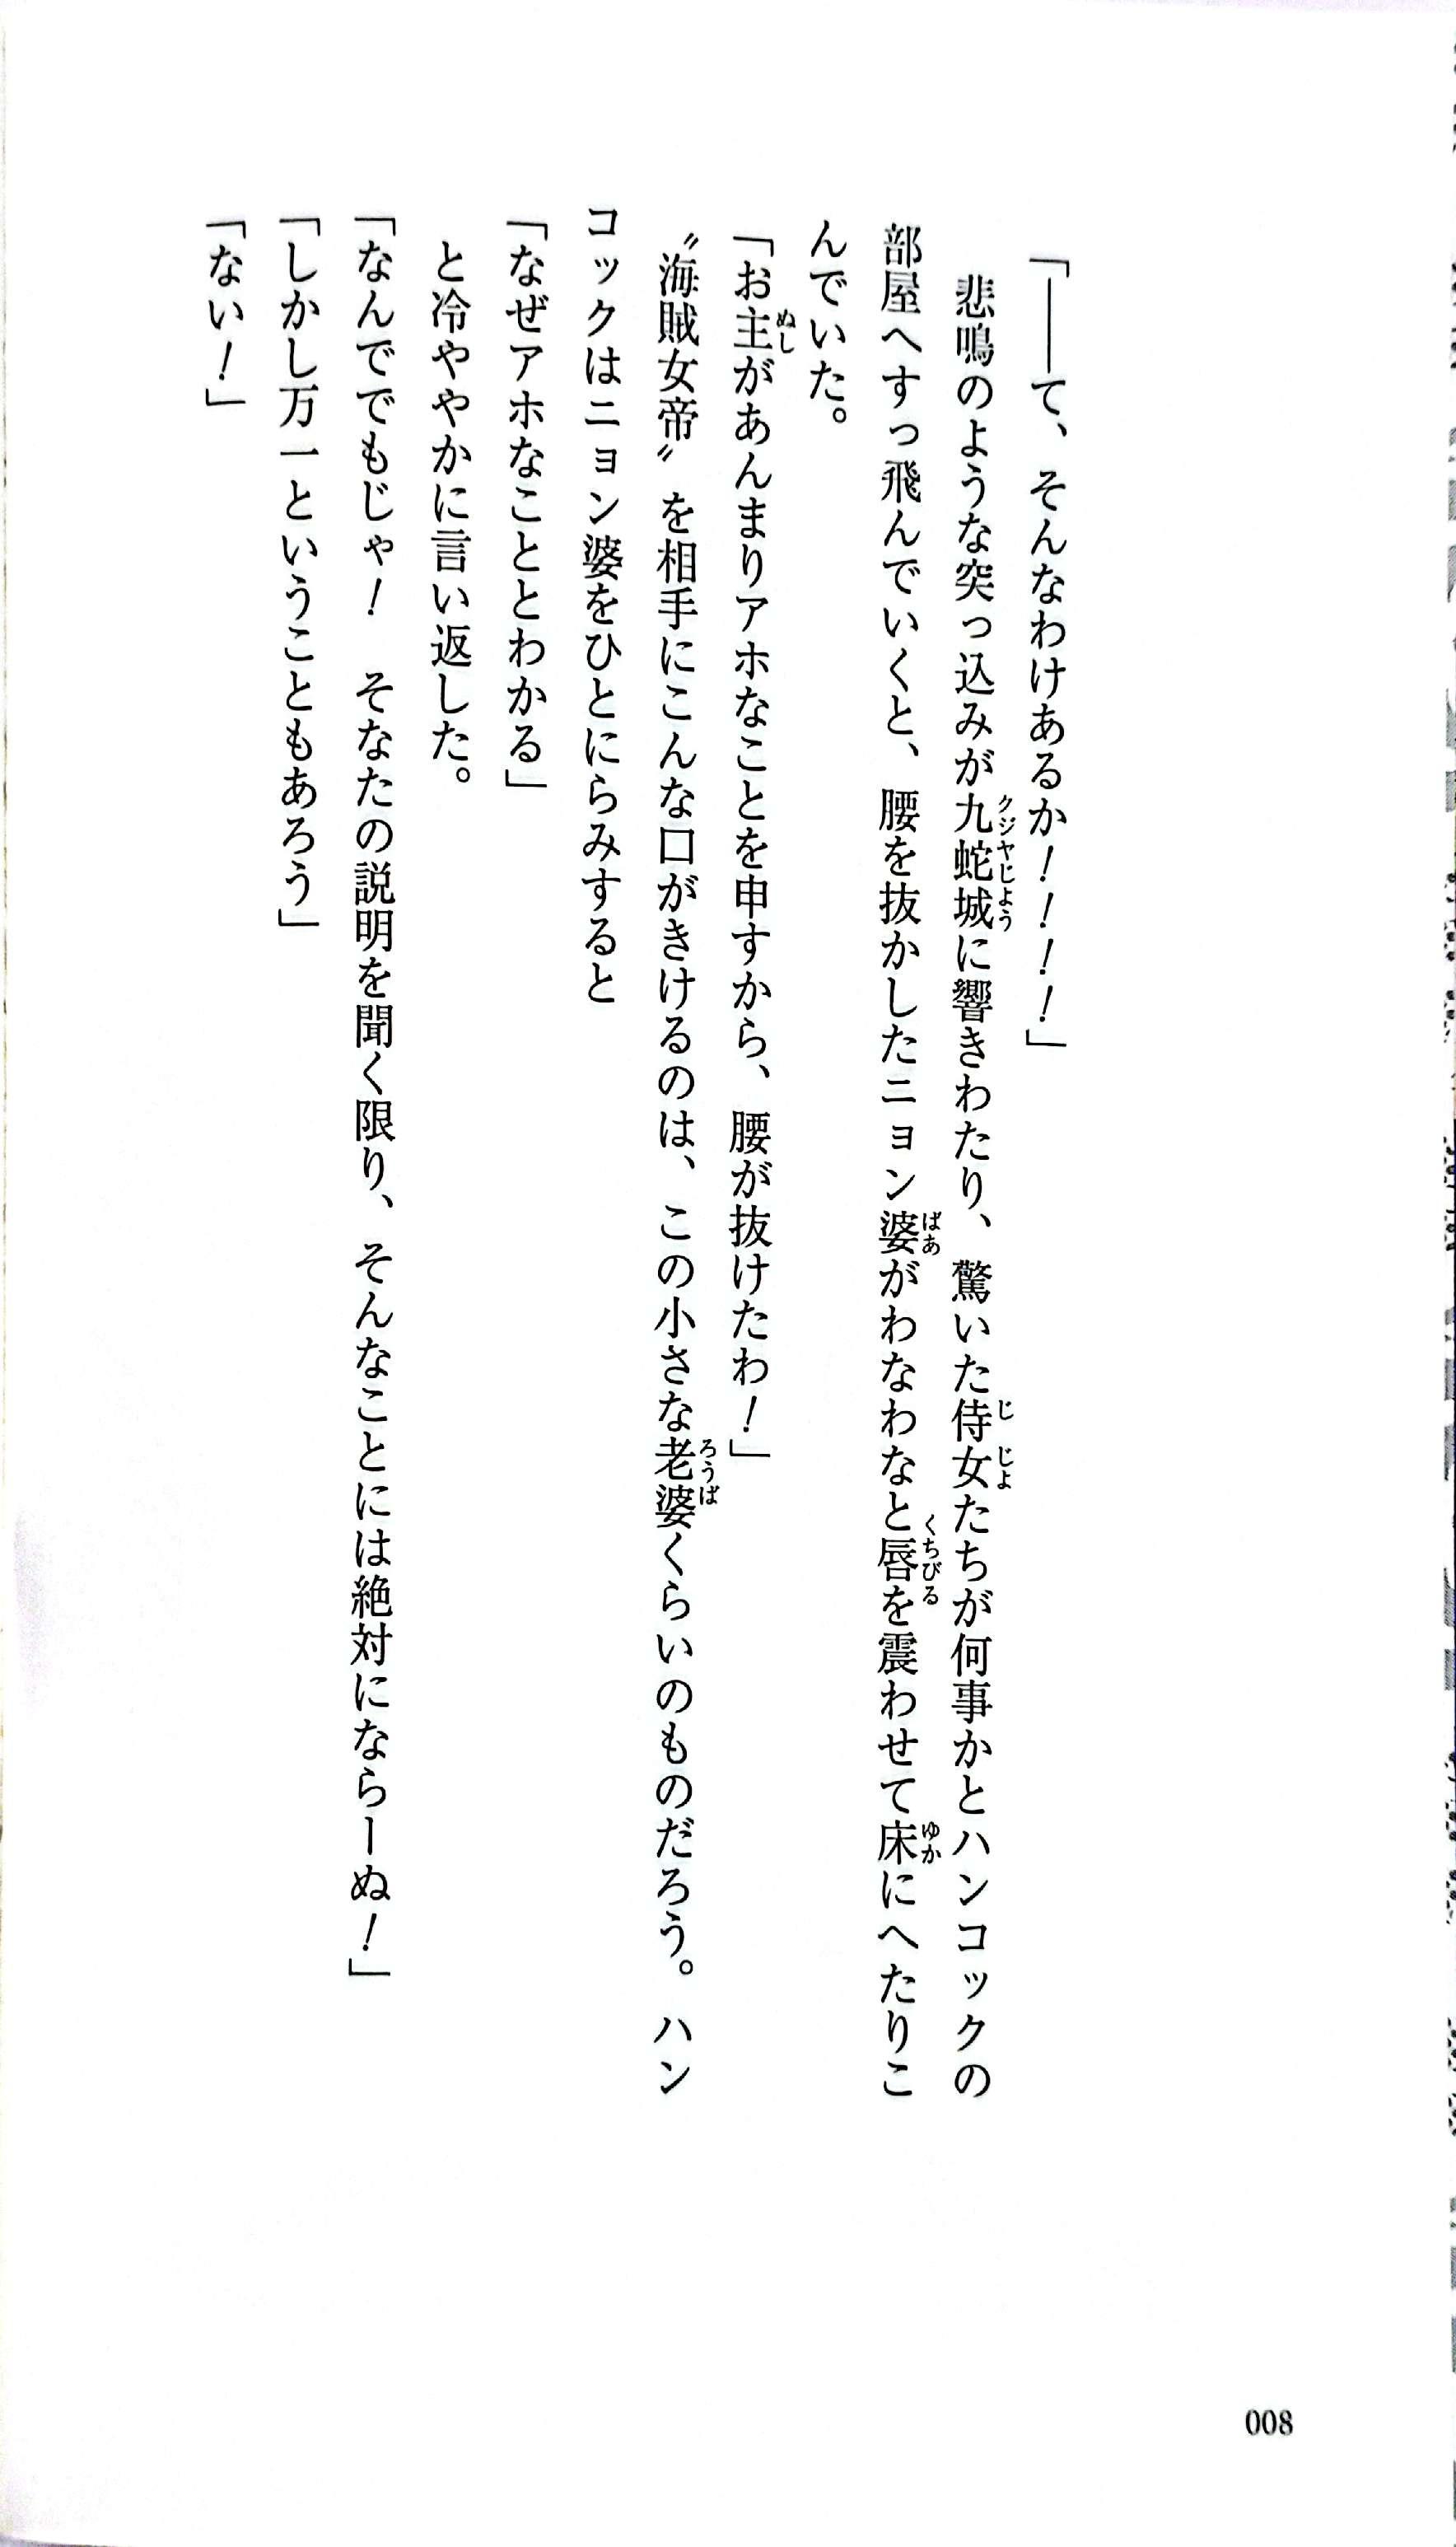 「――て、そんなわけあるか！！！！」
悲鳴のような突っ込みが九蛇城に響きわたり、驚いた侍女たちが何事かとハンコックの
部屋へすっ飛んでいくと、腰を抜かしたニョン婆がわなわなと唇を震わせて床にへたりこ
んでいた。
「お主があんまりアホなことを申すから、腰が抜けたわ！」
〝海賊女帝〟を相手にこんな口がきけるのは、この小さな老婆くらいのものだろう。ハン
コックはニョン婆をひとにらみすると
「なぜアホなこととわかる」
と冷ややかに言い返した。
「なんででもじゃ！　そなたの説明を聞く限り、そんなことには絶対にならーぬ！」
「しかし万一ということもあろう」
「ない！」
008